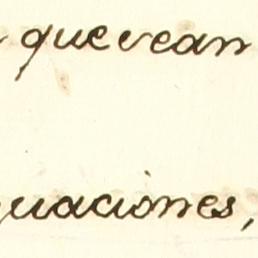 que vean
uaciones,